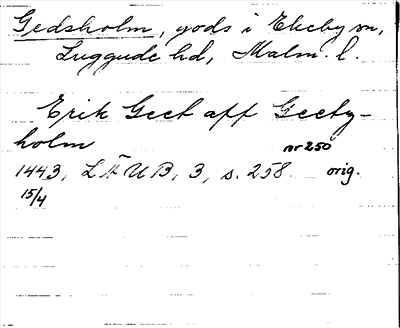 Gedsholm, gods i Ekeby sn,
Luggude hd, Malm. l.
Erik Geet aff Geety-
holm
nr 250
1443, LÄUB, 3, s. 258 orig.
15/4